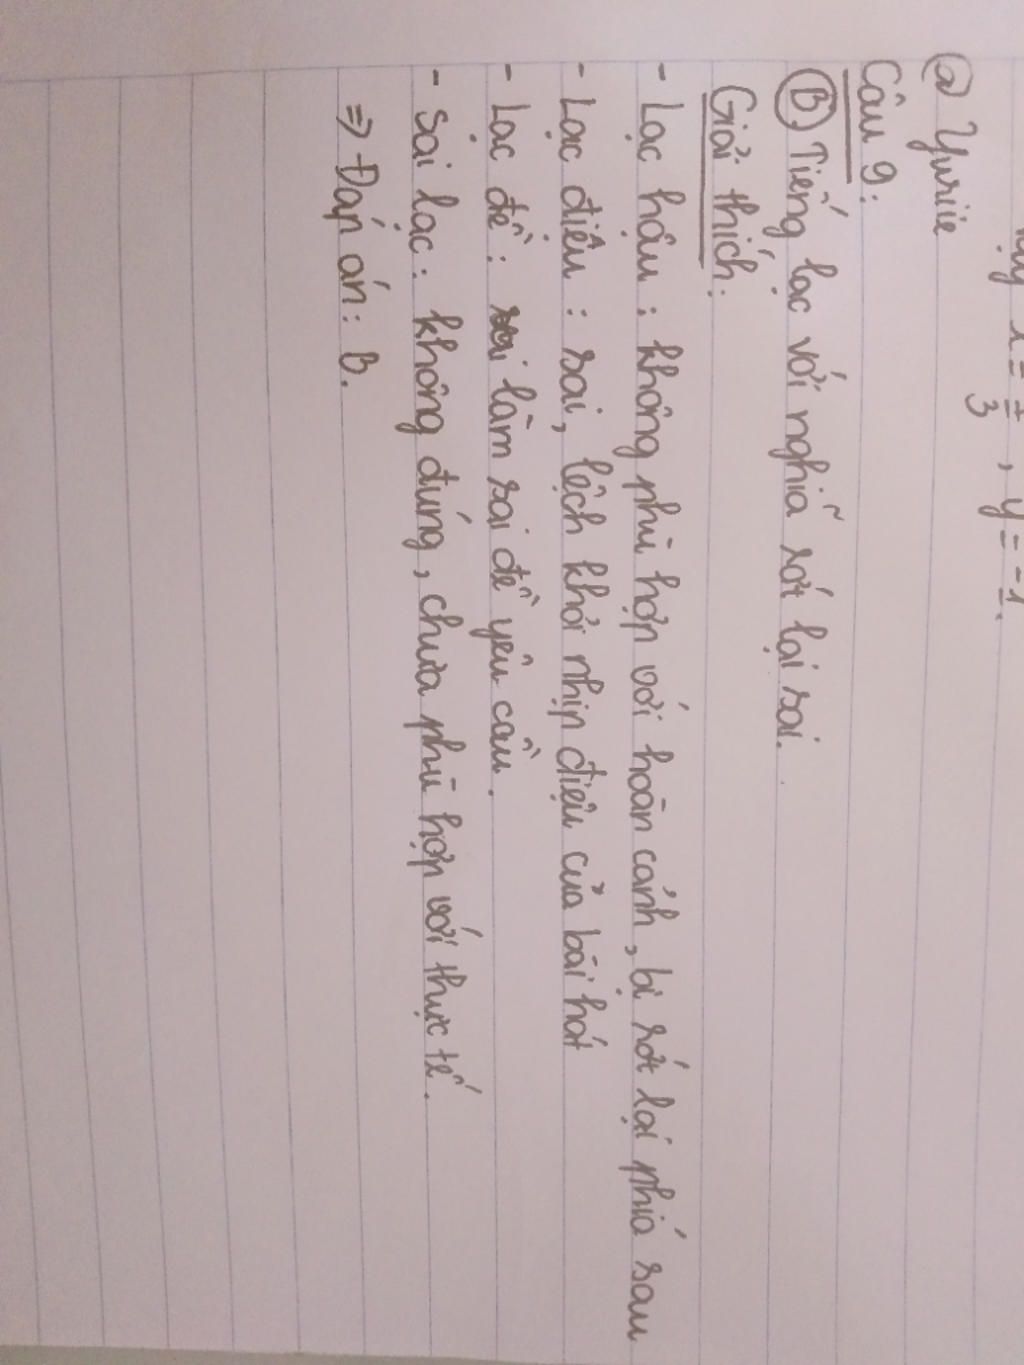 x = 1/3 , y = -1.
@ Yuriie
Câu 9:
B) Tiếng lạc với nghĩa rớt lại sai.
Giải thích:
- Lạc hậu : không phù hợp với hoàn cảnh, bị rớt lại phía sau
- Lạc điệu : sai, lệch khỏi nhịp điệu của bài hát
- Lạc đề : làm sai đề yêu cầu.
- Sai lạc : không đúng, chưa phù hợp với thực tế.
⇒ Đáp án: B.